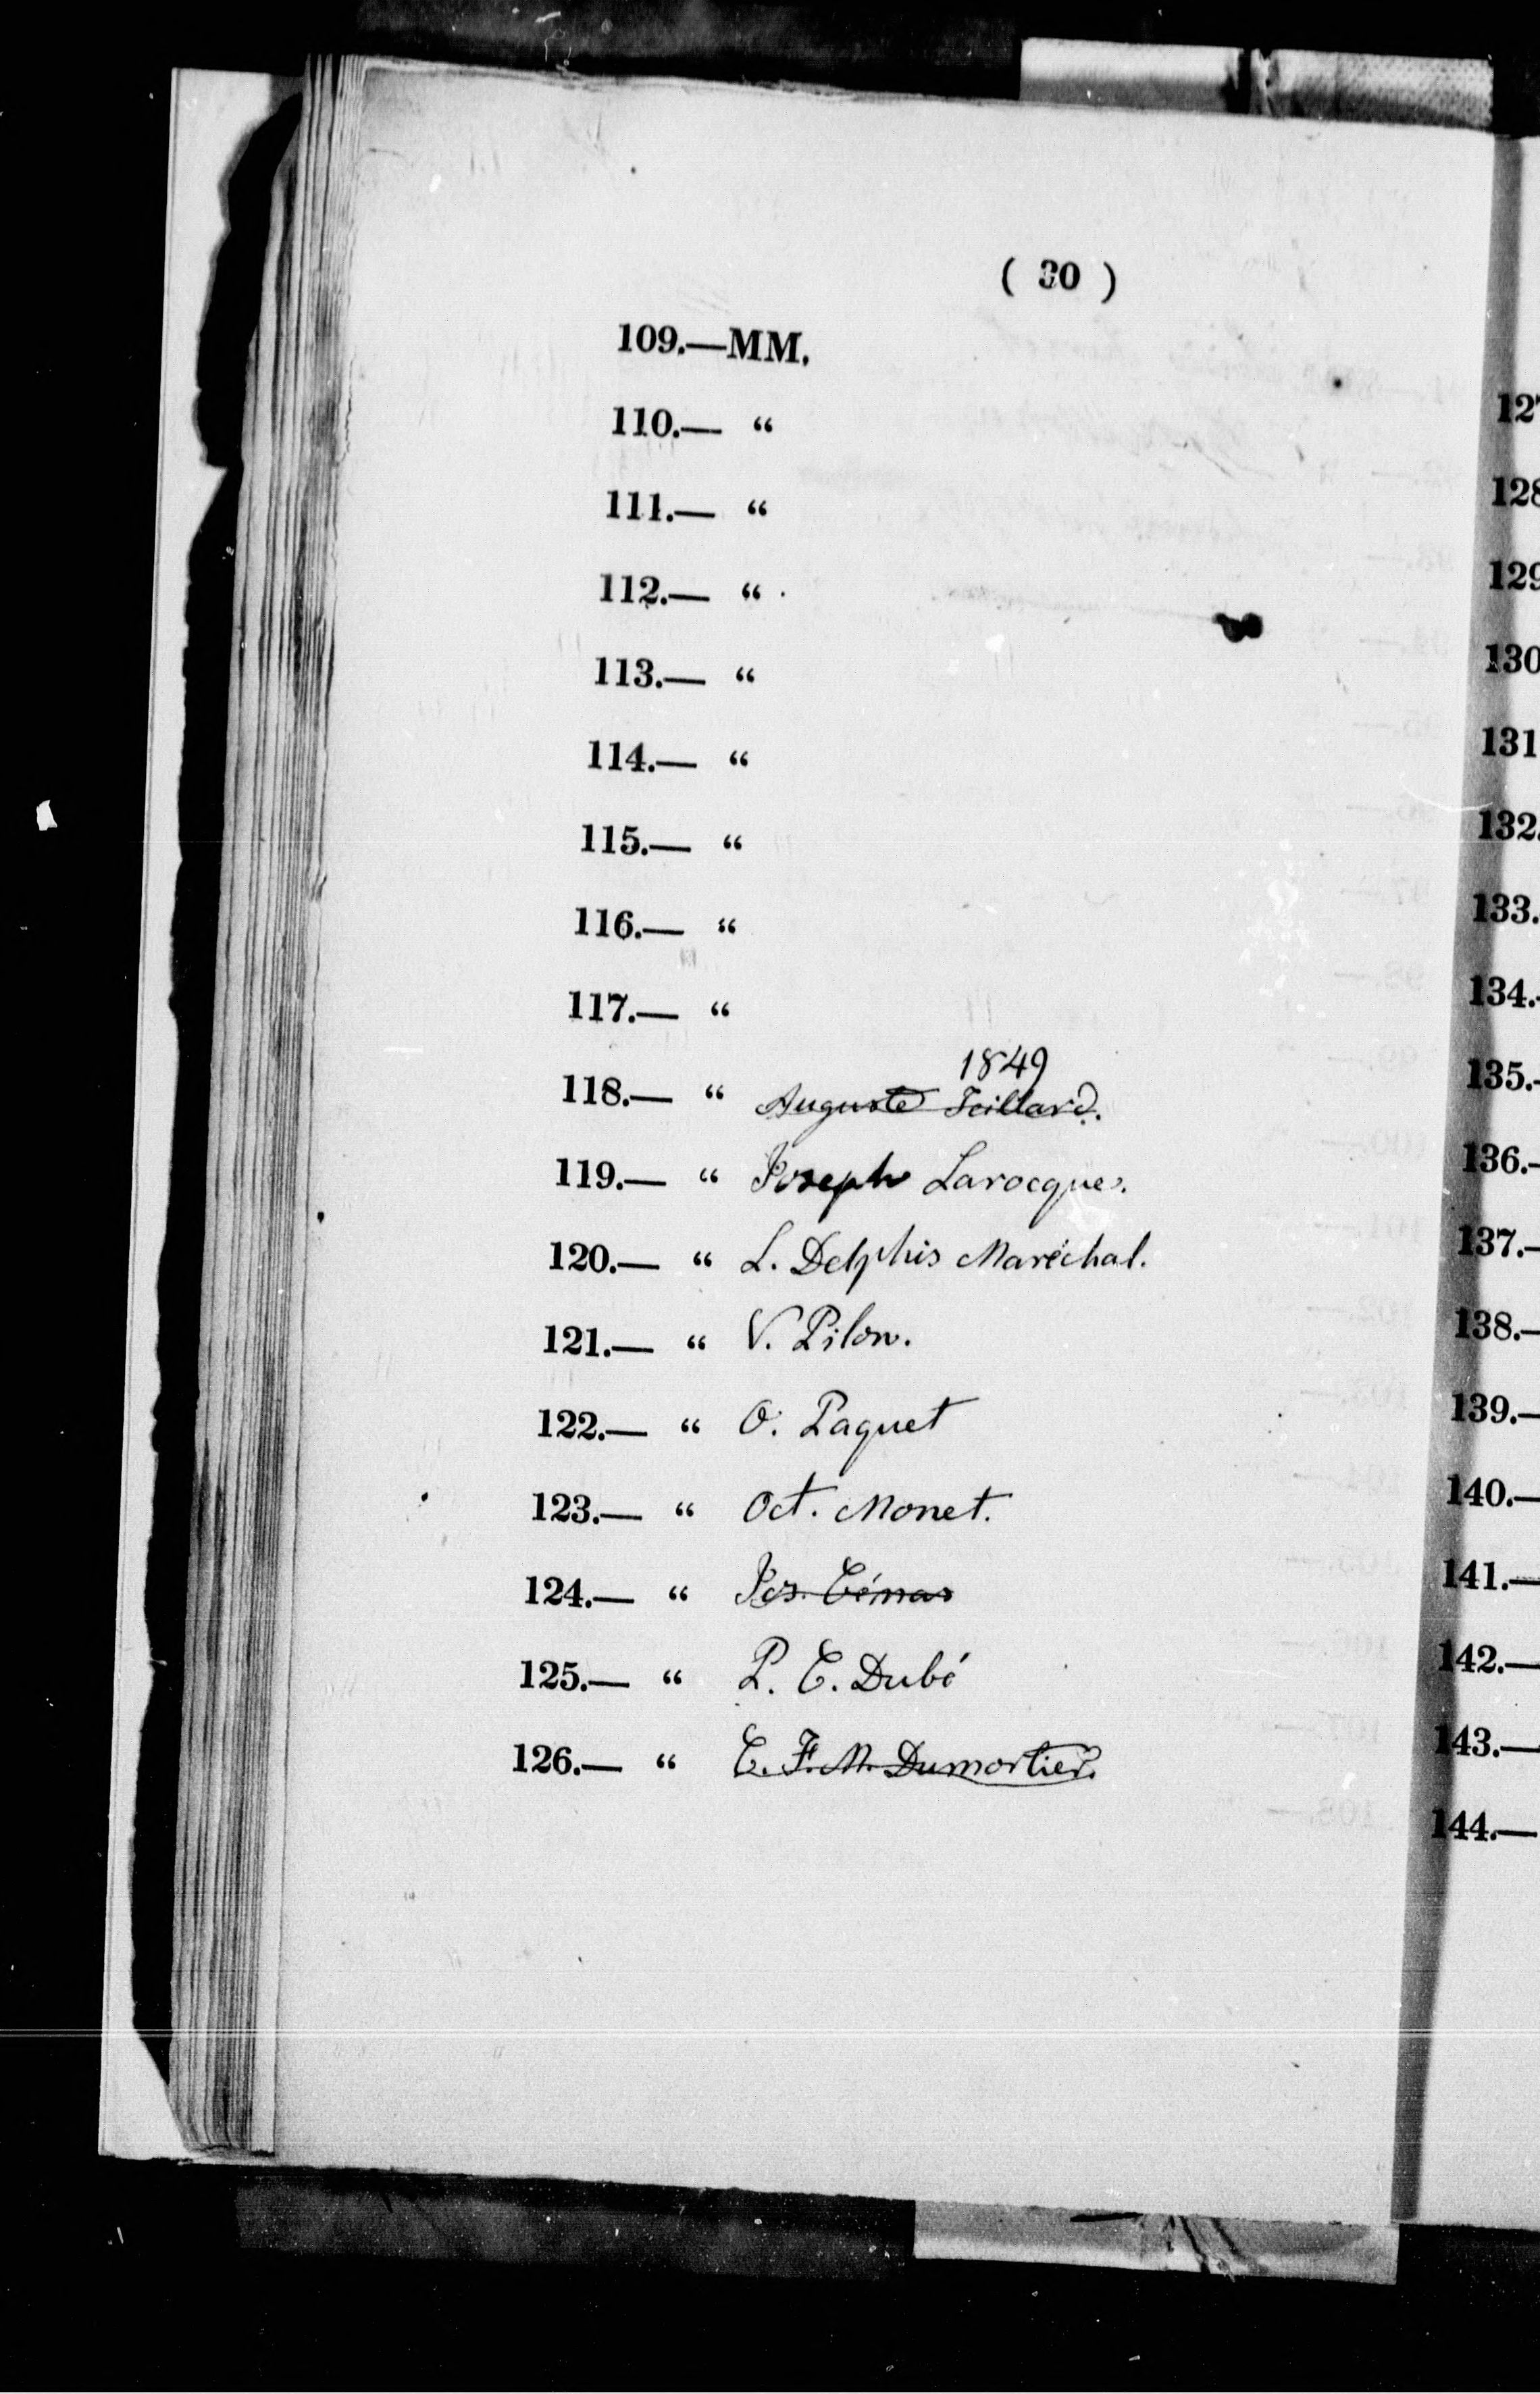 ( 30 )
109.—MM.
110.— “
111.— “
112.— “
113.— “
114.— “
115.— “
116.— “
117.— “
1849
118.— “ Auguste Teillard.
119.— “ Joseph Larocque.
120.— “ L. Delphis Maréchal.
121.— “ V. Pilon.
122.— “ O. Paquet
123.— “ Oct. Monet.
124.— “ Jos. Cénas
125.— “ P. C. Dubé
126.— “ C. F. M. Dumortier.
127
128
129
130
131
132.
133.
134.-
135.-
136.-
137.—
138.—
139.—
140.—
141.—
142.—
143.—
144.—